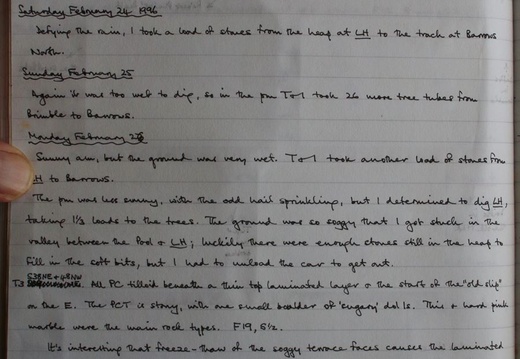 Saturday February 24 1996
Defying the rain, I took a load of stones from the heap at LH to the track at Barrows
North.
Sunday February 25
Again it was too wet to dig, so in the pm T+I took 26 more tree tubes from
Brimble to Barrows.
Monday February 26
Sunny am, but the ground was very wet. T+I took another load of stones from
LH to Barrows.
The pm was less sunny, with the odd hail sprinkling, but I determined to dig LH,
taking 1⅓ loads to the trees. The ground was so soggy that I got stuck in the
valley between the Pool & LH; luckily there were enough stones still in the heap to
fill in the soft bits, but I had to unload the car to get out.
S3BNE+4BNW
T3 All PC tilloid beneath a thin top laminated layer & the start of the "old slip"
on the E. The PCT is stony, with one small boulder of 'sugary' dol ls. This & hard pink
marble were the main rock types. F19, 6½.
It's interesting that freeze-thaw of the soggy terrace faces causes the laminated